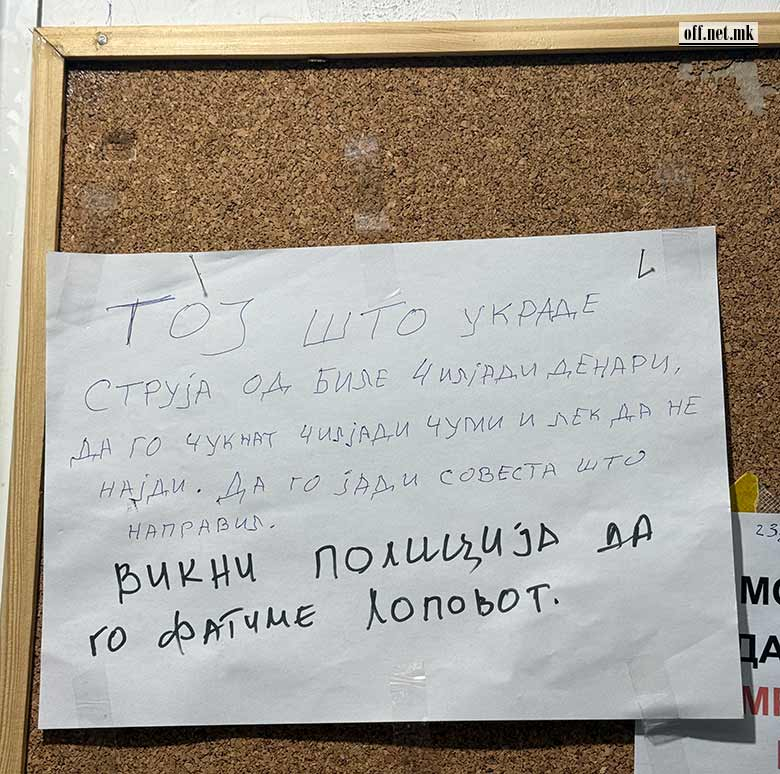 off.net.mk
ТОЈ ШТО УКРАДЕ
СТРУЈА ОД БИЛЕ 4 ИЛЈАДИ ДЕНАРИ,
ДА ГО ЧУКНАТ 4 ИЛЈАДИ ЧУМИ И ЛЕК ДА НЕ
НАЈДИ. ДА ГО ЈАДИ СОВЕСТА ШТО
НАПРАВИЛ.
ВИКНИ ПОЛИЦИЈА ДА
ГО ФАТИМЕ ЛОПОВОТ.
23
МО
ДА